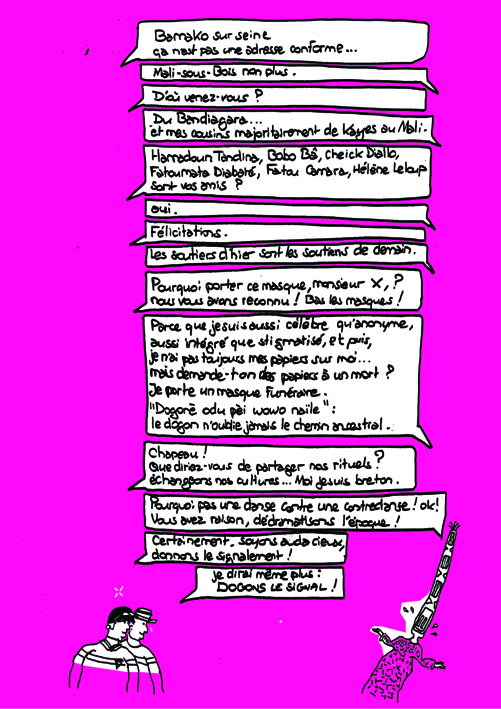 Bamako sur seine
ça n'est pas une adresse conforme...
Mali-sous-Bois non plus.
D'où venez-vous ?
Du Bandiagara...
et mes cousins majoritairement de Kayes au Mali.
Hamadoun Tandina, Bobo Bâ, Cheick Diallo,
Fatoumata Diabaté, Fatou Camara, Hélène Leloup
sont vos amis ?
oui.
Félicitations.
Les soutiers d'hier sont les soutiens de demain.
Pourquoi porter ce masque, monsieur X, ?
nous vous avons reconnu ! Bas les masques !
Parce que je suis aussi célèbre qu'anonyme,
aussi intégré que stigmatisé, et puis,
je n'ai pas toujours mes papiers sur moi...
mais demande-t'on des papiers à un mort ?
Je porte un masque funéraire.
"Dogonè odu pài wowo naïle" :
le dogon n'oublie jamais le chemin ancestral.
Chapeau !
Que diriez-vous de partager nos rituels ?
échangeons nos cultures... Moi je suis breton.
Pourquoi pas une danse contre une contredanse ! ok !
Vous avez raison, dédramatisons l'époque !
Certainement. soyons audacieux,
donnons le signalement !
je dirai même plus :
DOGONS LE SIGNAL !